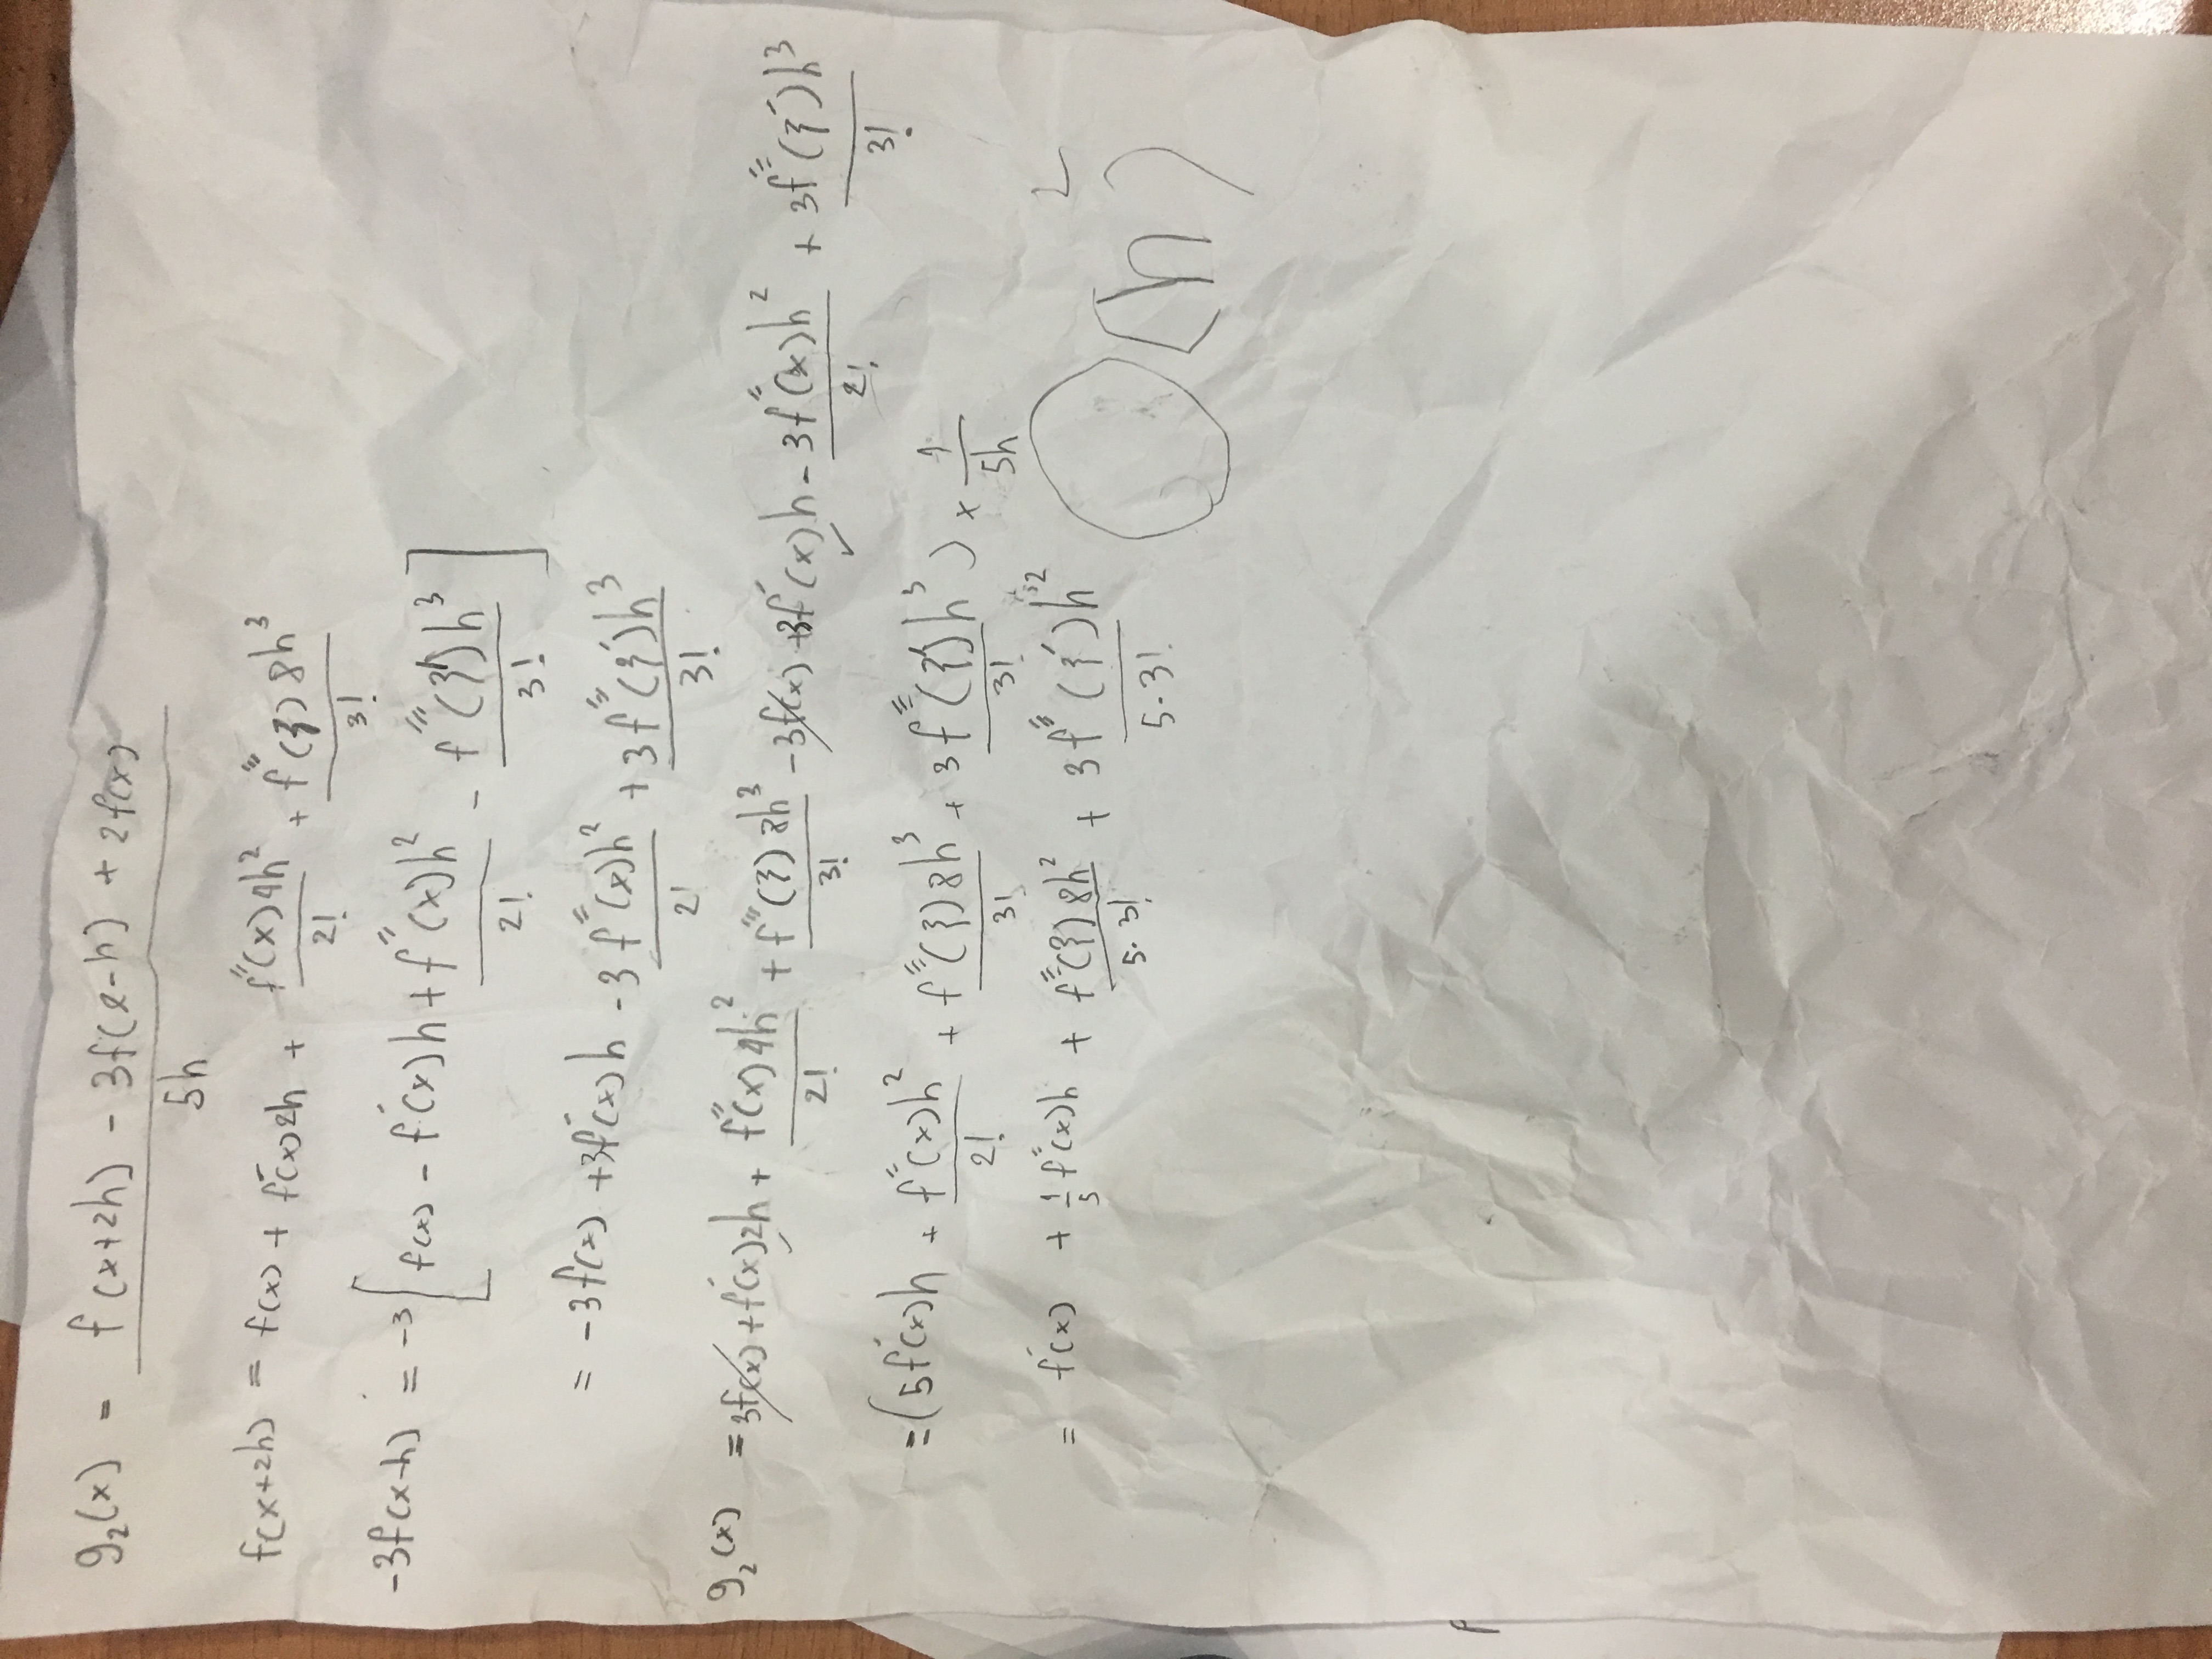 g₂(x) = (f(x+2h) - 3f(x-h) + 2f(x)) / 5h
f(x+2h) = f(x) + f'(x)2h + f''(x)4h²/2! + f'''(ξ)8h³/3!
-3f(x-h) = -3[f(x) - f'(x)h + f''(x)h²/2! - f'''(ξ')h³/3!]
= -3f(x) + 3f'(x)h - 3f''(x)h²/2! + 3f'''(ξ')h³/3!
g₂(x) = 3f(x) + f'(x)2h + f''(x)4h²/2! + f'''(ξ)8h³/3! - 3f(x) + 3f'(x)h - 3f''(x)h²/2! + 3f'''(ξ')h³/3!
= (5f'(x)h + f''(x)h²/2! + f'''(ξ)8h³/3! + 3f'''(ξ')h³/3!) × 1/5h
= f'(x) + 1/5 f''(x)h + f'''(ξ)8h²/5·3! + 3f'''(ξ')h²/5·3! O(h)²